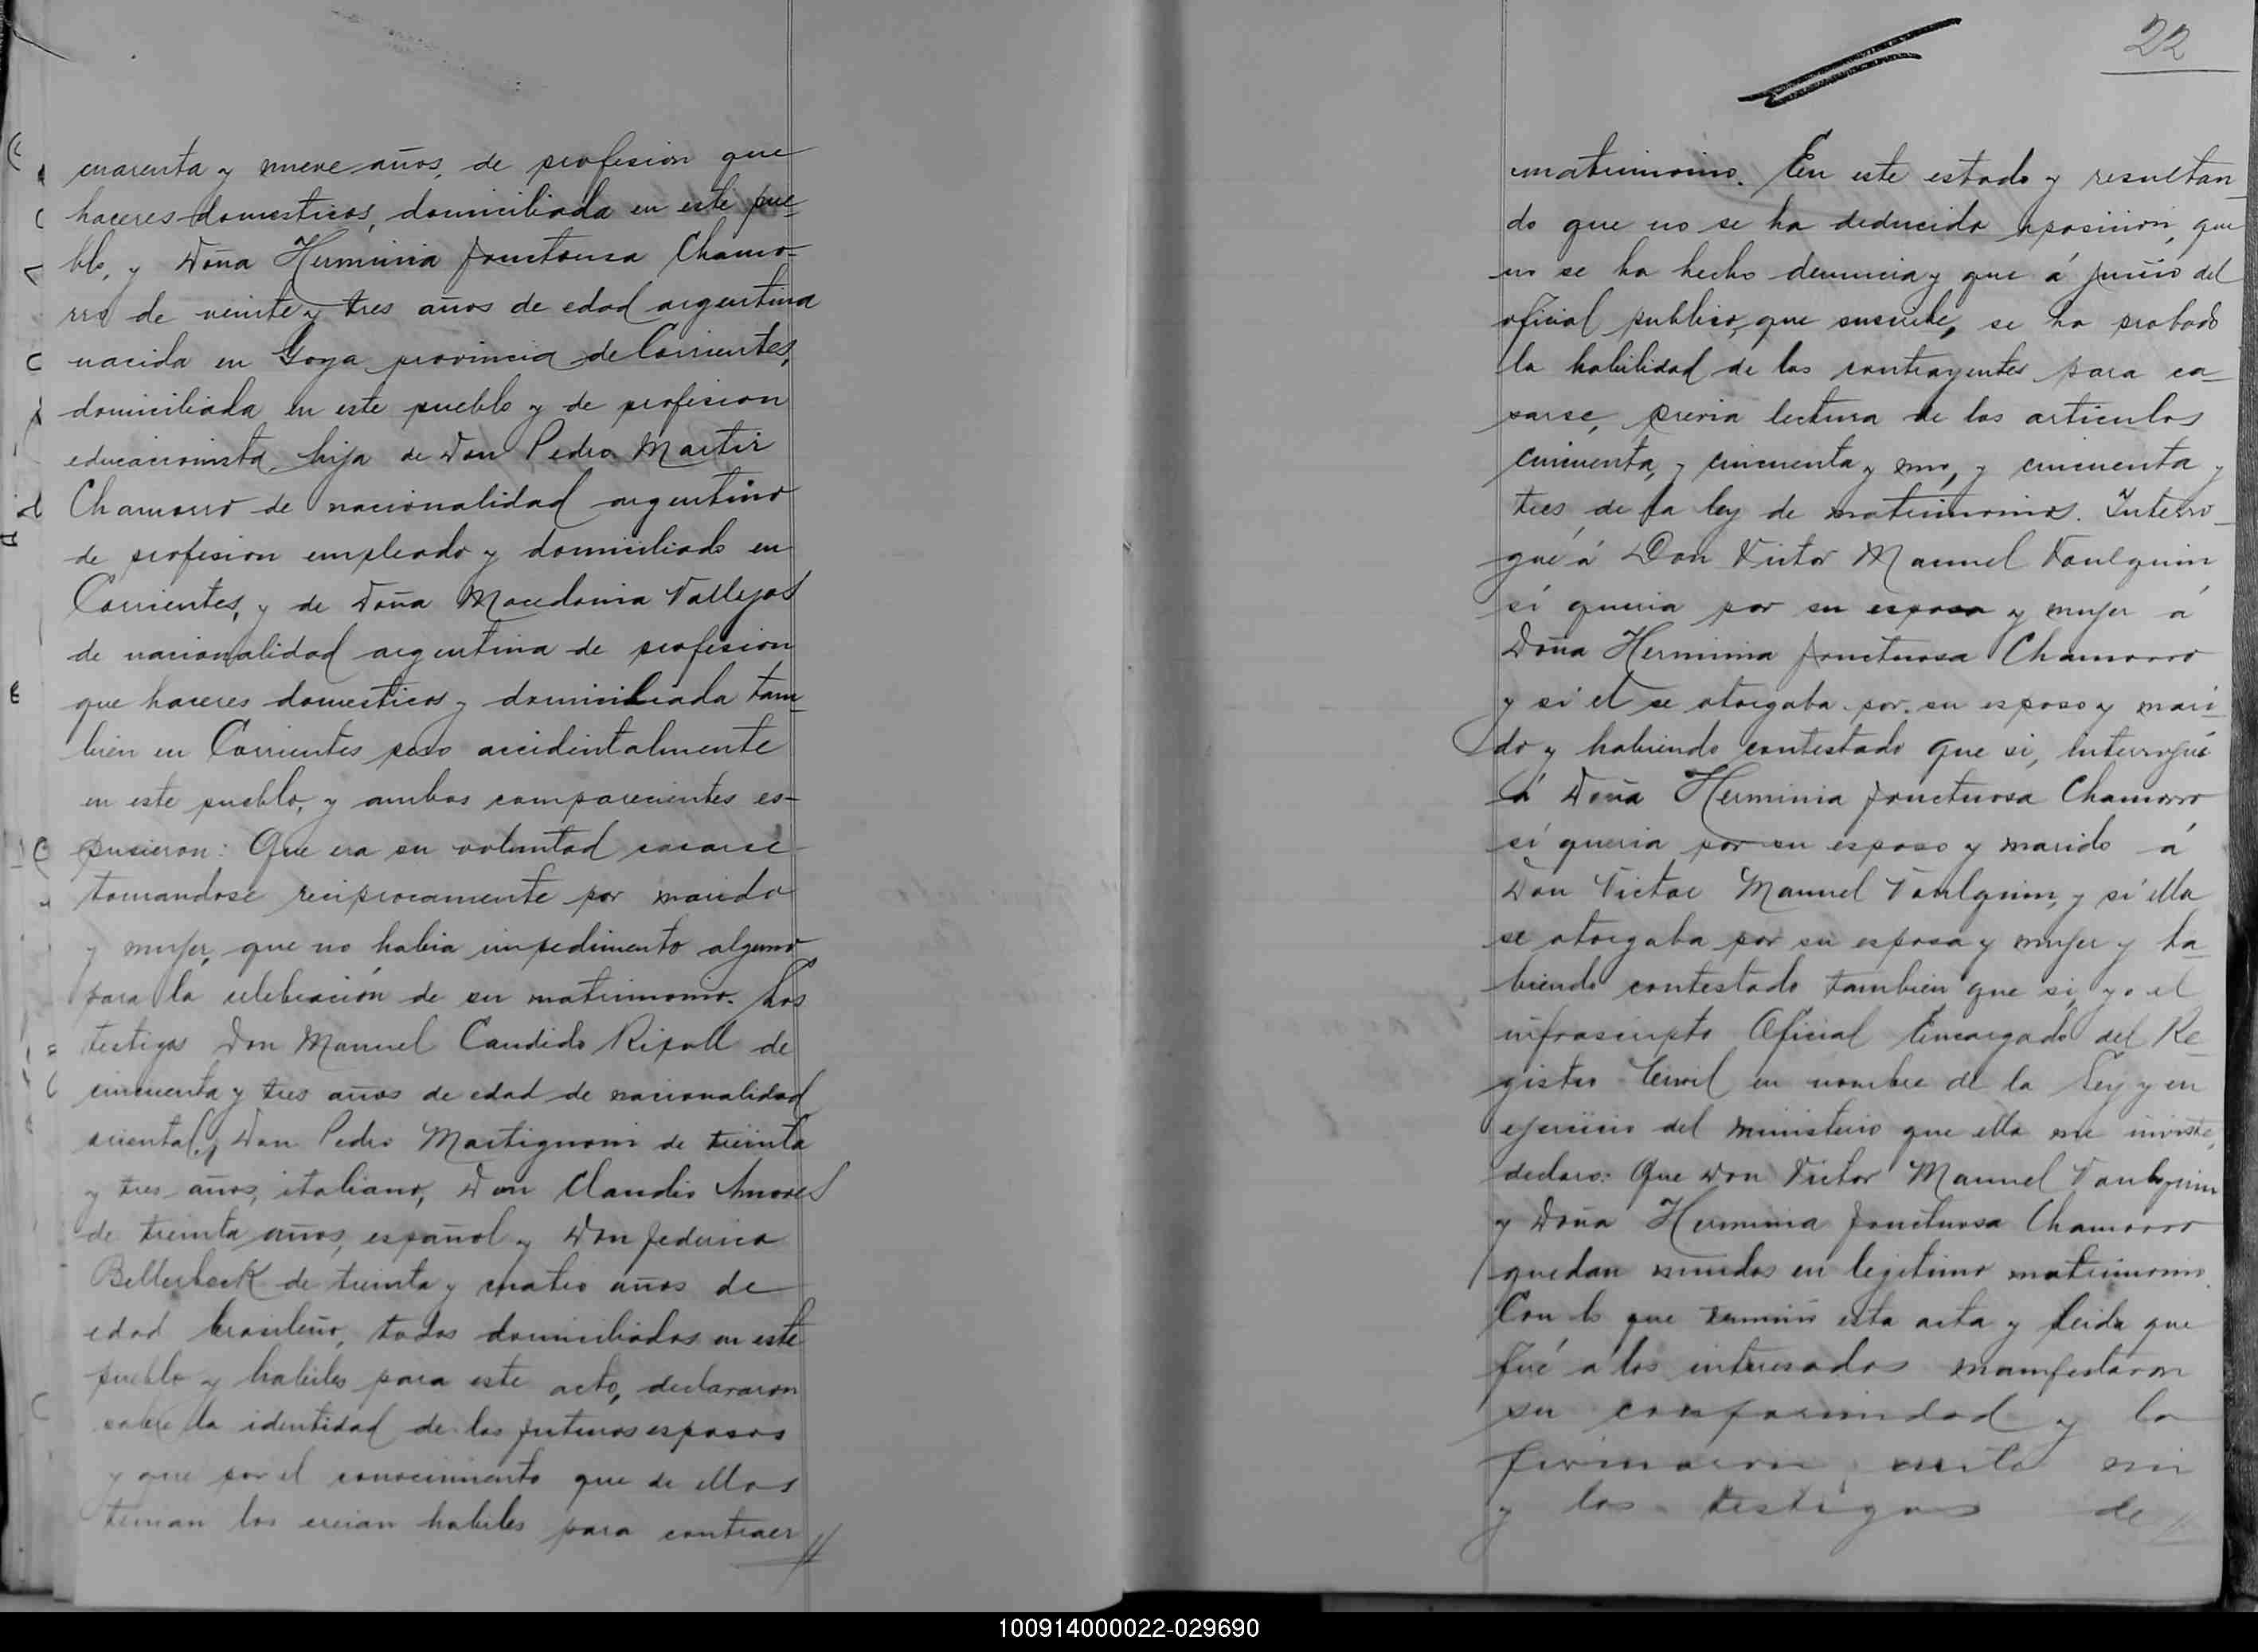 cuarenta y nueve años, de profesion que
haceres domesticos, domiciliada en este pue-
blo, y Doña Herminia Fructuosa Chamo-
rro de veinte y tres años de edad argentina
nacida en Goya provincia de Corrientes,
domiciliada en este pueblo y de profesion
educacionista, hija de Don Pedro Martir
Chamorro de nacionalidad argentino
de profesion empleado y domiciliado en
Corrientes, y de Doña Macedonia Vallejos
de nacionalidad argentina de profesion
que haceres domesticos y domiciliada tam-
bien en Corrientes pero accidentalmente
en este pueblo, y ambos comparecientes es-
pusieron: Que era su voluntad casarse
tomandose reciprocamente por marido
y mujer, que no habia impedimento alguno
para la celebración de su matrimonio. Los
testigos Don Manuel Candido Ripoll de
cincuenta y tres años de edad de nacionalidad
oriental, Don Pedro Martignoni de treinta
y tres años, italiano, Don Claudio Amores
de treinta años, español y Don Federico
Bellerbeck de treinta y cuatro años de
edad brasileño, todos domiciliados en este
pueblo y habiles para este acto, declararon
sobre la identidad de los futuros esposos
y que por el conocimiento que de ellos
tenian los creian habiles para contraer //
22
matrimonio. En este estado y resultan-
do que no se ha deducido oposicion, que
no se ha hecho denuncia y que á juicio del
oficial publico, que suscribe, se ha probado
la habilidad de los contrayentes para ca-
sarse, previa lectura de los articulos
cincuenta, y cincuenta y uno, y cincuenta y
tres de la ley de matrimonios. Interro-
gué á Don Victor Manuel Toulquin
si queria por su esposa y mujer á
Doña Herminia Fructuosa Chamorro
y si el se otorgaba por su esposo y mari-
do y habiendo contestado que si, interrogué
á Doña Herminia Fructuosa Chamorro
si queria por su esposo y marido á
Don Victor Manuel Toulquin, y si ella
se otorgaba por su esposa y mujer y ha-
biendo contestado tambien que si, yo el
infrascripto Oficial Encargado del Re-
gistro Civil en nombre de la Ley y en
ejercicio del ministerio que ella me inviste,
declaro: Que Don Victor Manuel Toulquin
y Doña Herminia Fructuosa Chamorro
quedan unidos en legitimo matrimonio.
Con lo que terminó esta acta y leida que
fué a los interesados manifestaron
su conformidad y la
firmaron ante mi
y los testigos de //
100914000022-029690